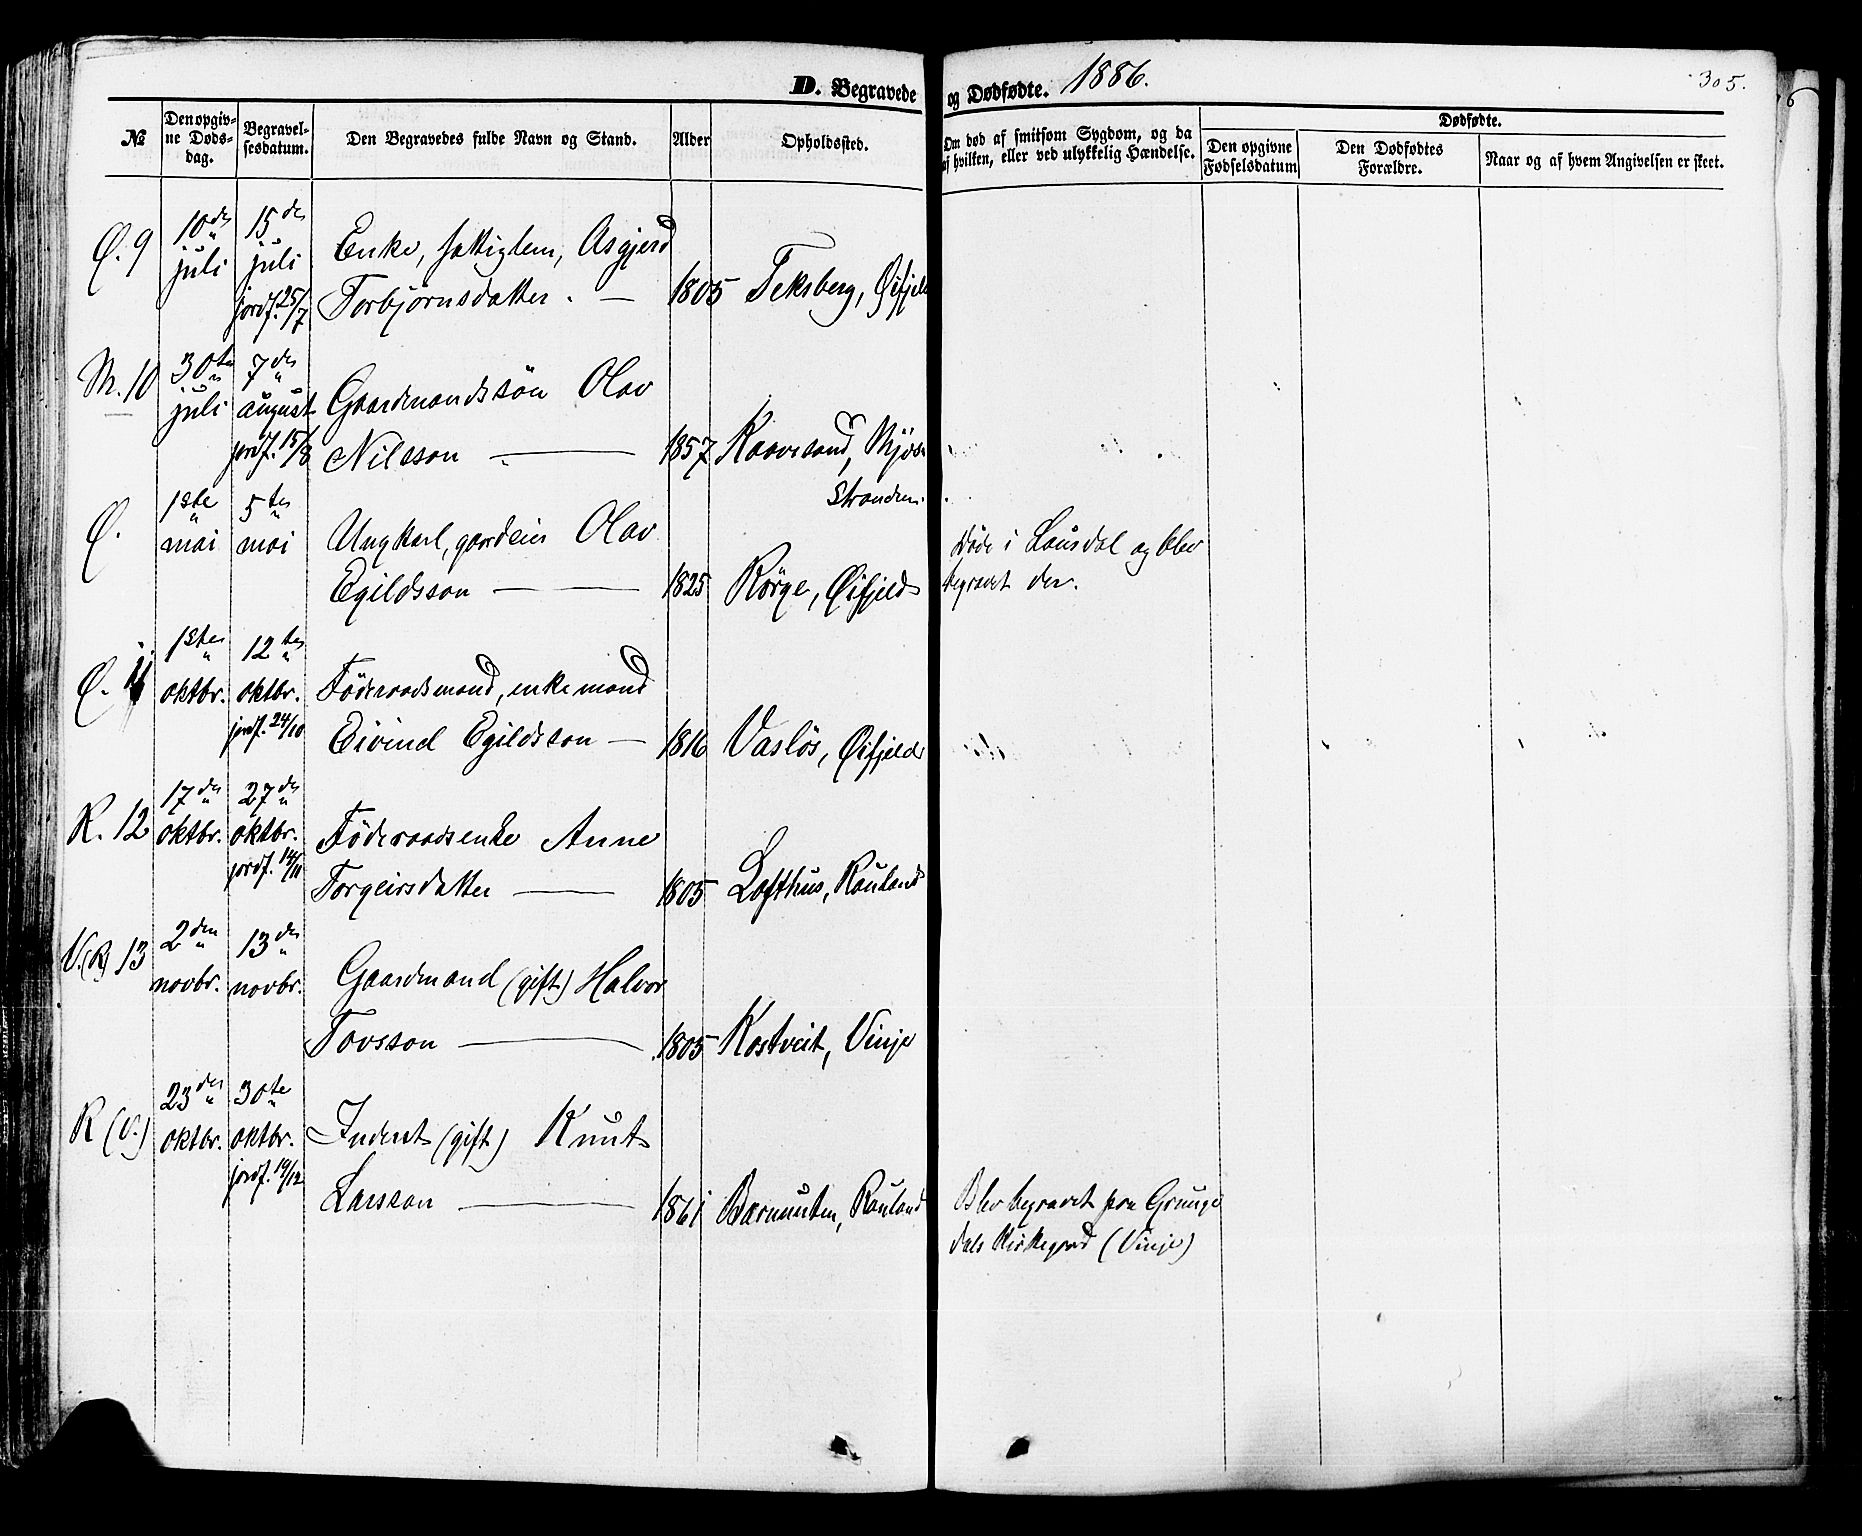 D. Begravede og Dødfødte. 1886.
305.
№
Den opgiv-
ne Døds-
dag.
Begravel-
sesdatum.
Den Begravedes fulde Navn og Stand.
Alder
Opholdssted.
Om død af smitsom Sygdom, og da
af hvilken, eller ved ulykkelig Hændelse.
Dødfødte.
Den opgivne
Fødselsdatum
Den Dødfødtes
Forældre.
Naar og af hvem Angivelsen er skeet.
Ø. 9
10de juli
15de juli
jordf. 25/7
Enke, fattiglem, Asgjerd
Torbjørnsdatter. — 1805
Teksberg, Øifjeld
M. 10
30te juli
7de august
jordf. 15/8
Gaardmandssön Olav
Nilsson — 1857
Kaavesand, Mjøs-
Stranden.
Ø.
1ste mai
5te mai
Ungkarl, gardeier Olav
Egildsson — 1825
Rörge, Øifjeld
Døde i Lausdal og blev
begravet der.
Ø. 11
1ste oktbr.
12te oktbr.
jordf. 24/10
Föderaadsmand, enkemand
Eivind Egildsson — 1816
Vaslös, Øifjeld
R. 12
17de oktbr.
27de oktbr.
jordf. 14/11
Föderaadsenke Anne
Torgeirsdatter — 1805
Lofthus, Rauland
V.(R) 13
2den novbr.
13de novbr.
Gaardmand (gift) Halvor
Tovsson — 1805
Kostveit, Vinje
R (V.)
23de oktbr.
30te oktbr.
jordf. 19/12
Inderst (gift) Knut
Larsson — 1861
Bærnuten, Rauland
Blev begravet paa Grunge
dals Kirkegard (Vinje)